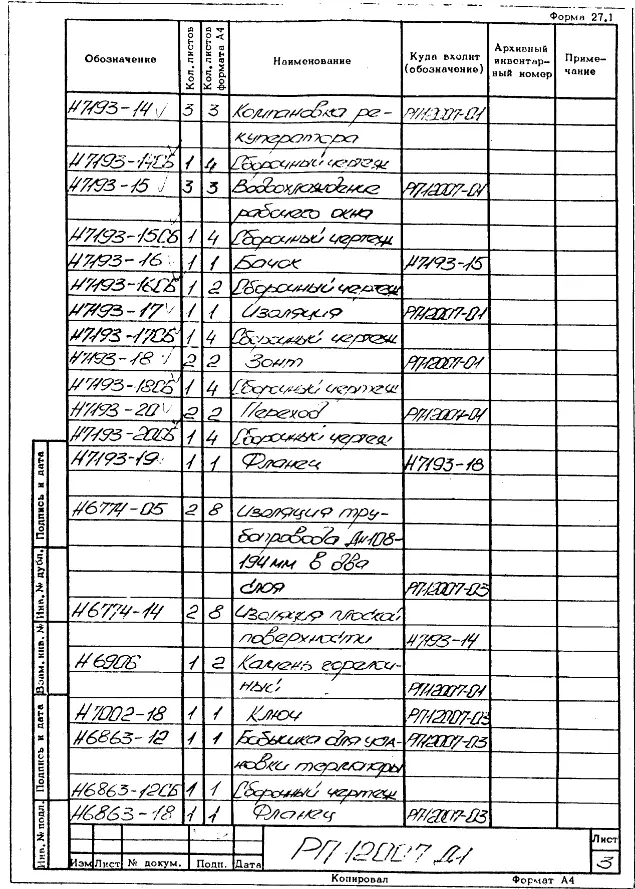 Форма 27.1
Обозначение Кол. листов Кол. листов формата А4 Наименование Куда входит (обозначение) Архивный инвентарный номер Примечание
Н7193-14 3 3 Компановка ре- РП12007-01
куператора
Н7193-14СБ 1 4 Сборочный чертеж
Н7193-15 3 3 Водоохлаждение РП12007-01
рабочего окна
Н7193-15СБ 1 4 Сборочный чертеж
Н7193-16 1 1 Бачок Н7193-15
Н7193-16СБ 1 2 Сборочный чертеж
Н7193-17 1 1 Изоляция РП12007-01
Н7193-17СБ 1 4 Сборочный чертеж
Н7193-18 2 2 Зонт РП12007-01
Н7193-18СБ 1 4 Сборочный чертеж
Н7193-20 2 2 Переход РП12007-01
Н7193-20СБ 1 4 Сборочный чертеж
Н7193-19 1 1 Фланец Н7193-18
Н6774-05 2 8 Изоляция тру-
бопровода Дн108-
194мм в два
слоя РП12007-03
Н6774-14 2 8 Изоляция плоской
поверхности Н7193-14
Н6906 1 2 Камень горелоч-
ный РП12007-01
Н7002-18 1 1 Ключ РП12007-03
Н6863-12 1 1 Бобышка для уста- РП12007-03
новки термопары
Н6863-12СБ 1 1 Сборочный чертеж
Н6863-18 1 1 Фланец РП12007-03
Инв. № подл. Подпись и дата Взам. инв. № Инв. № дубл. Подпись и дата
РП 12007 Д1
Лист
3
Изм Лист № докум. Подп. Дата
Копировал Формат А4